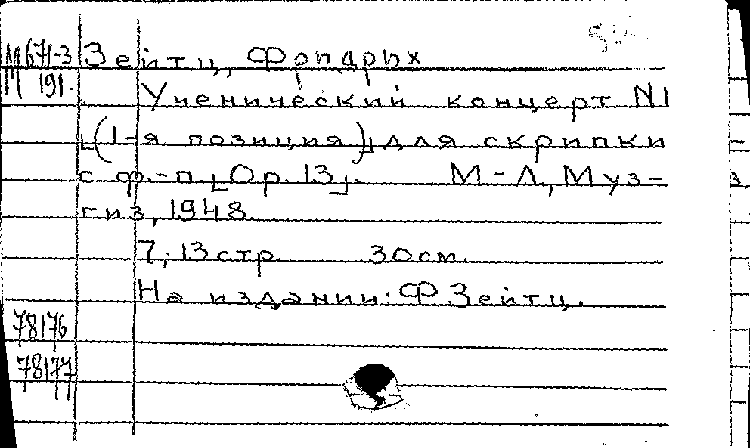 М671-3 Зейтц, Фридрих
М 191.
Ученический концерт N1
[(1-я позиция)] для скрипки
с ф.-п. [Op. 13]. М-Л., Муз-
гиз, 1948.
7; 13 стр 30 см.
На издании: Ф Зейтц.
78176
78177